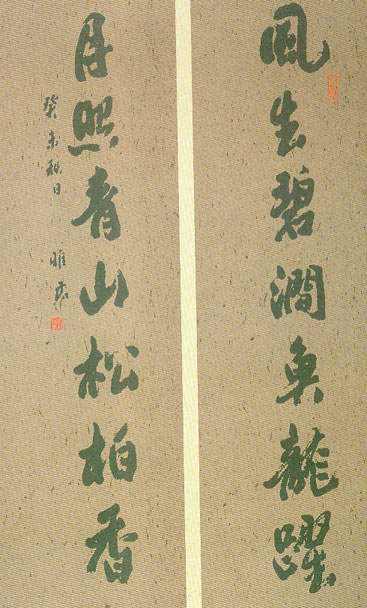 風生碧澗魚龍躍
月照青山松柏香
癸未秋日